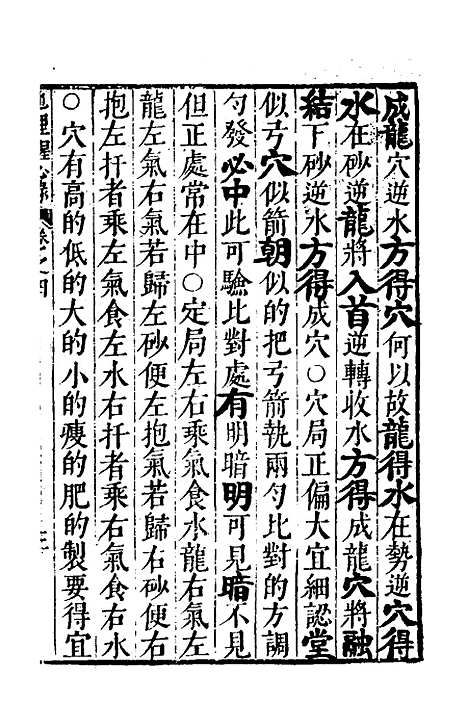 成龍穴逆水方得穴何以故龍得水在勢逆穴得
水在砂逆龍將入首逆轉收水方得成龍穴將融
結下砂逆水方得成穴○穴局正偏大宜細認堂
似弓穴似箭朝似的把弓箭執兩勻比對的方調
勻發必中此可驗比對處有明暗明可見暗不見
但正處常在中○定局左右乘氣食水龍右氣左
龍左氣右氣若歸左砂便左抱氣若歸右砂便右
抱左扦者乘左氣食左水右扦者乘右氣食右水
○穴有高的低的大的小的瘦的肥的製要得宜
地理醒心錄 卷之四